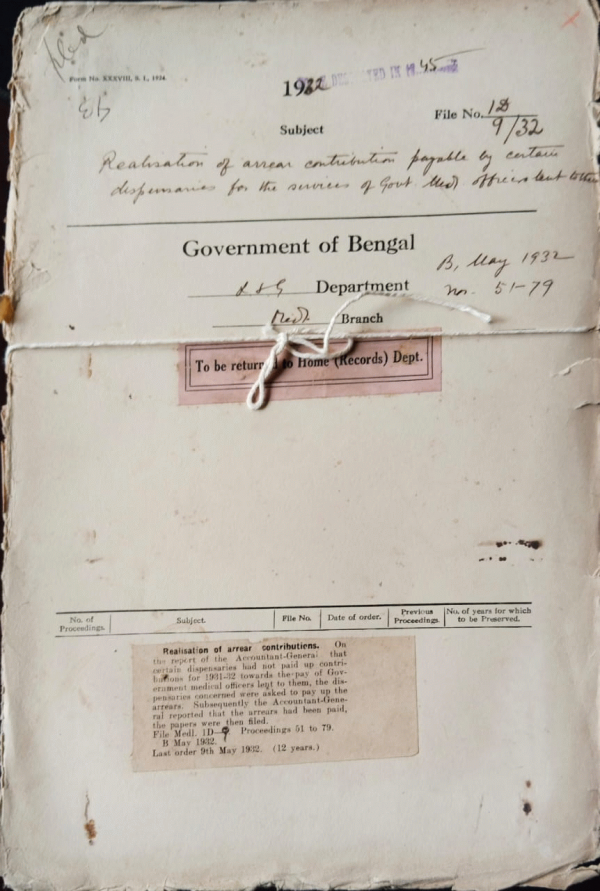 filed
Form No. XXXVIII, S. I., 1934.
1932
File No. 1D
9/32
Subject
Realisation of arrear contribution payable by certain
dispensaries for the services of Govt. Med. officers lent to them
Government of Bengal
B, May 1932
Department
nos. 51-79
Medl. Branch
To be returned to Home (Records) Dept.
No. of Proceedings. Subject. File No. Date of order. Previous Proceedings. No. of years for which to be Preserved.
Realisation of arrear contributions. On
the report of the Accountant-General that
certain dispensaries had not paid up contri-
butions for 1931-32 towards the pay of Gov-
ernment medical officers lent to them, the dis-
pensaries concerned were asked to pay up the
arrears. Subsequently the Accountant-Gene-
ral reported that the arrears had been paid,
the papers were then filed.
File Medl. 1D—9 Proceedings 51 to 79.
B May 1932.
Last order 9th May 1932. (12 years.)